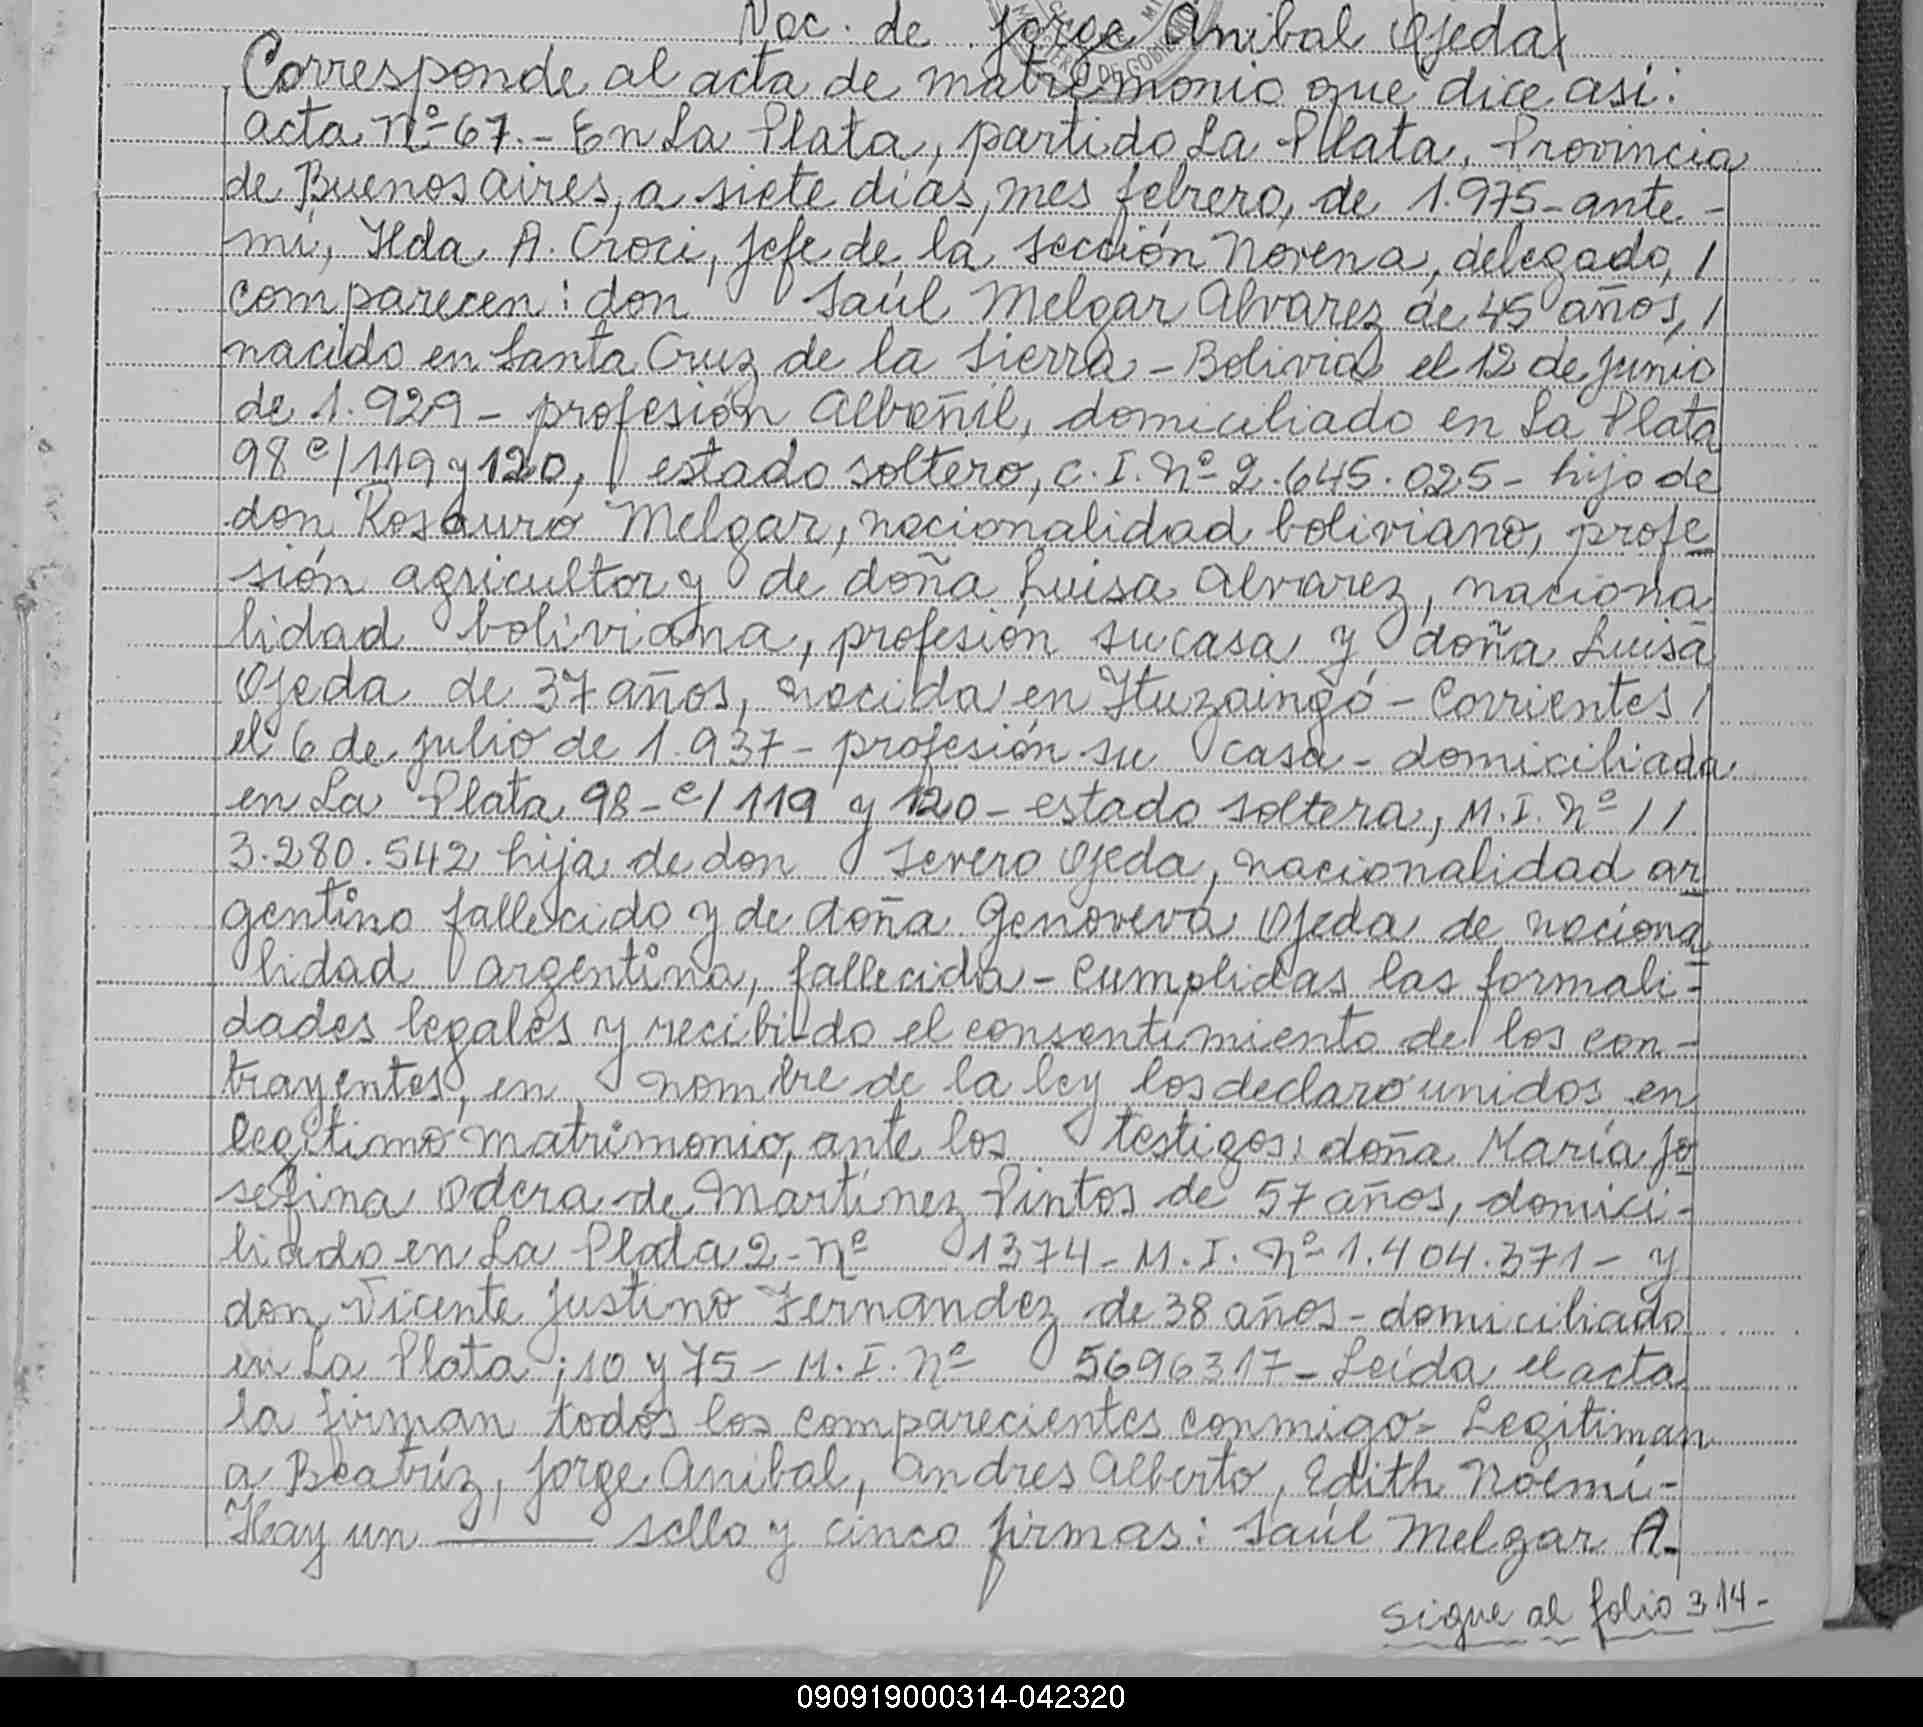 Nac. de Jorge Anibal Ojeda
Corresponde al acta de matrimonio que dice asi:
acta Nº 67.- En La Plata, partido La Plata, Provincia
de Buenos aires, a siete días, mes febrero, de 1.975- ante-
mi, Ilda A. Croci, Jefe de la sección Novena, delegado, /
comparecen: don Saúl Melgar Alvarez de 45 años, /
nacido en Santa Cruz de la Sierra - Bolivia el 12 de junio
de 1.929 - profesión Albañil, domiciliado en La Plata
98 e/ 119 y 120, estado soltero, C.I. Nº 2.645.025 - hijo de
don Rosauro Melgar, nacionalidad boliviano, profe
sión agricultor y de doña Luisa Alvarez, naciona
lidad boliviana, profesión su casa y doña Luisa
Ojeda de 37 años, nacida en Ituzaingó - Corrientes /
el 6 de julio de 1.937 - profesión su casa - domiciliada
en La Plata 98 - e/ 119 y 120 - estado soltera, M.I. Nº / /
3.280.542 hija de don Severo Ojeda, nacionalidad ar
gentino fallecido y de doña Genoveva Ojeda de naciona
lidad argentina, fallecida - Cumplidas las formali-
dades legales y recibido el consentimiento de los con-
trayentes, en nombre de la ley los declaro unidos en
legítimo matrimonio, ante los testigos: doña María Jo
sefina Odera de Martínez Pintos de 57 años, domici-
liado en La Plata 2 - Nº 1374 - M.I. Nº 1.404.371 - y
don Vicente Justino Fernandez de 38 años - domiciliado
en La Plata; 10 y 75 - M.I. Nº 5696317 - Leída el acta
la firman todos los comparecientes conmigo - Legitiman
a Beatríz, Jorge Anibal, Andres Alberto, Edith Noemí -
Hay un ——— sello y cinco firmas: Saúl Melgar A.
Sigue al folio 314-
090919000314-042320